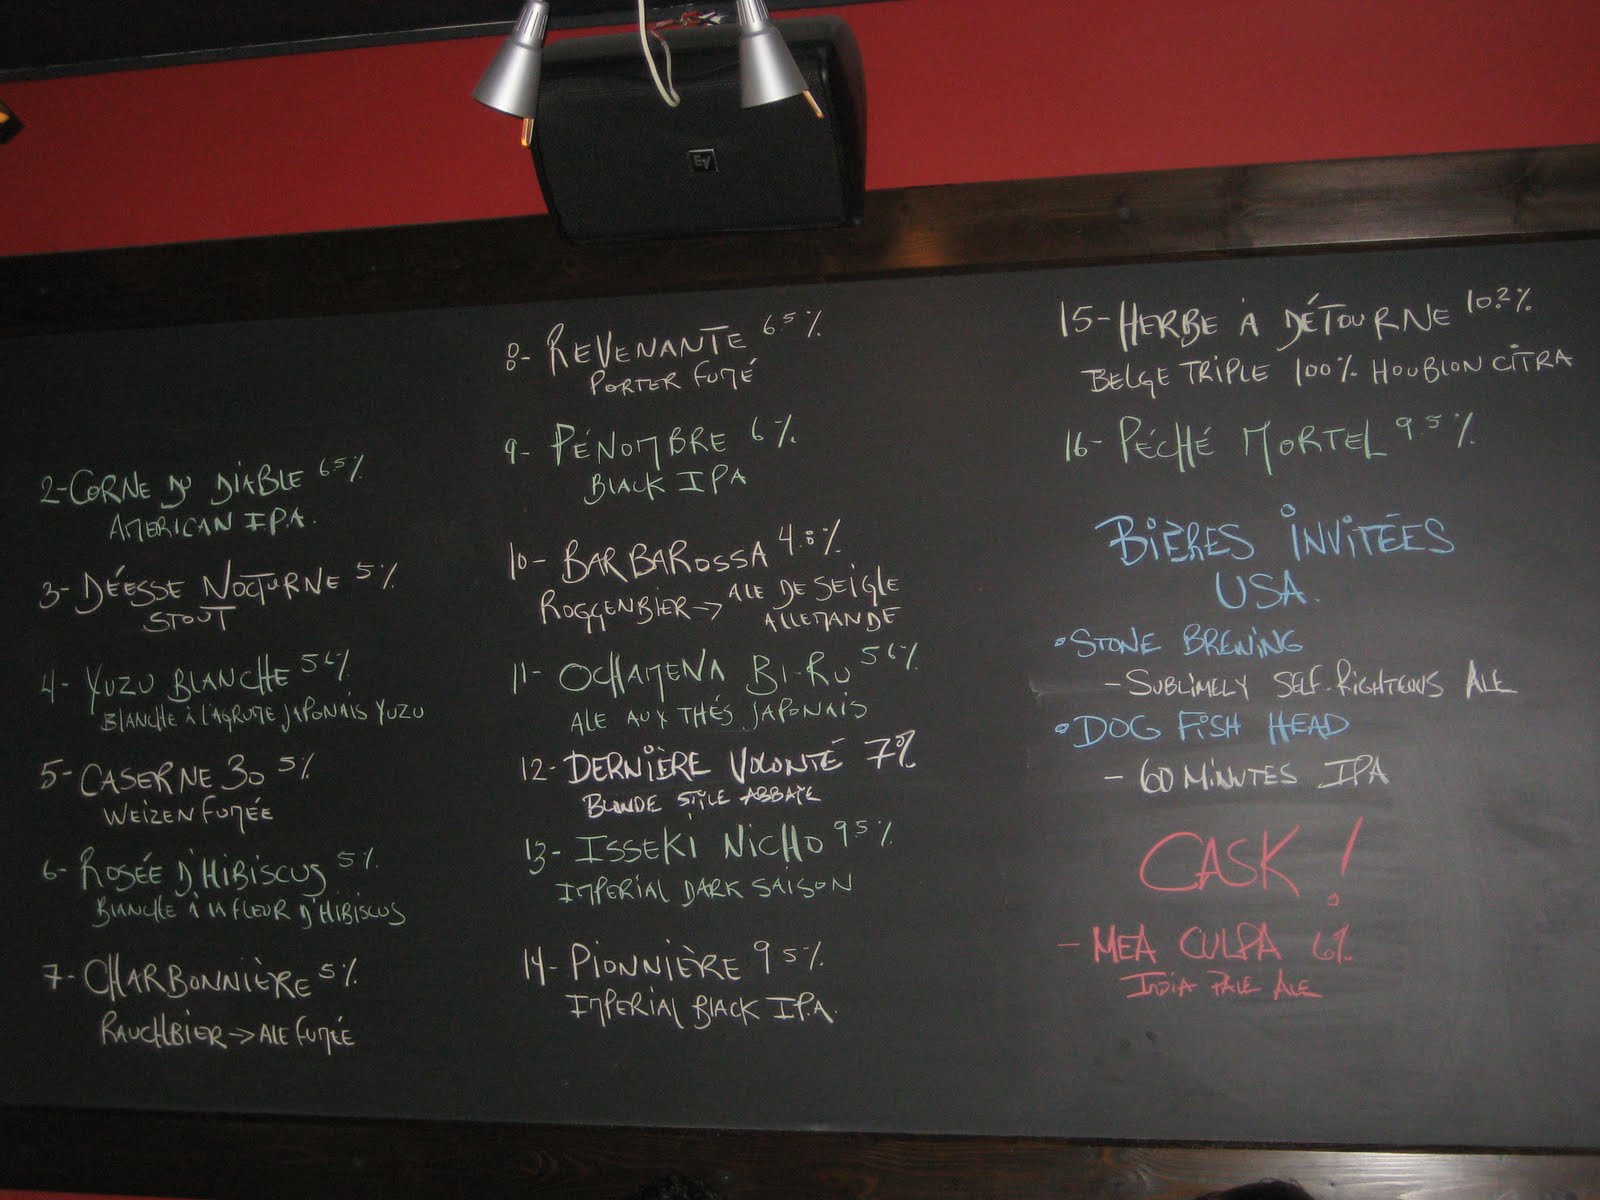 EV
2-CORNE DU DIABLE 6.5%
AMERICAN I.P.A.
3-DÉESSE NOCTURNE 5%
STOUT
4-YUZU BLANCHE 5.6%
BLANCHE À L'AGRUME JAPONAIS YUZU
5-CASERNE 30 5%
WEIZEN FUMÉE
6-ROSÉE D'HIBISCUS 5%
BLANCHE À LA FLEUR D'HIBISCUS
7-CHARBONNIÈRE 5%
RAUCHBIER→ALE FUMÉE
8-REVENANTE 6.5%
PORTER FUMÉ
9-PÉNOMBRE 6%
BLACK IPA
10-BARBAROSSA 4.8%
ROGGENBIER→ALE DE SEIGLE
ALLEMANDE
11-OCHAMENA BI-RU 5.6%
ALE AUX THÉS JAPONAIS
12-DERNIÈRE VOLONTÉ 7%
BLONDE STYLE ABBAYE
13-ISSEKI NICHO 9.5%
IMPERIAL DARK SAISON
14-PIONNIÈRE 9.5%
IMPERIAL BLACK I.P.A.
15-HERBE À DÉTOURNE 10.2%
BELGE TRIPLE 100% HOUBLON CITRA
16-PÉCHÉ MORTEL 9.5%
BIÈRES INVITÉES
USA.
•STONE BREWING
-SUBLIMELY SELF-RIGHTEOUS ALE
•DOG FISH HEAD
-60 MINUTES IPA
CASK!
-MEA CULPA 6%
INDIA PALE ALE